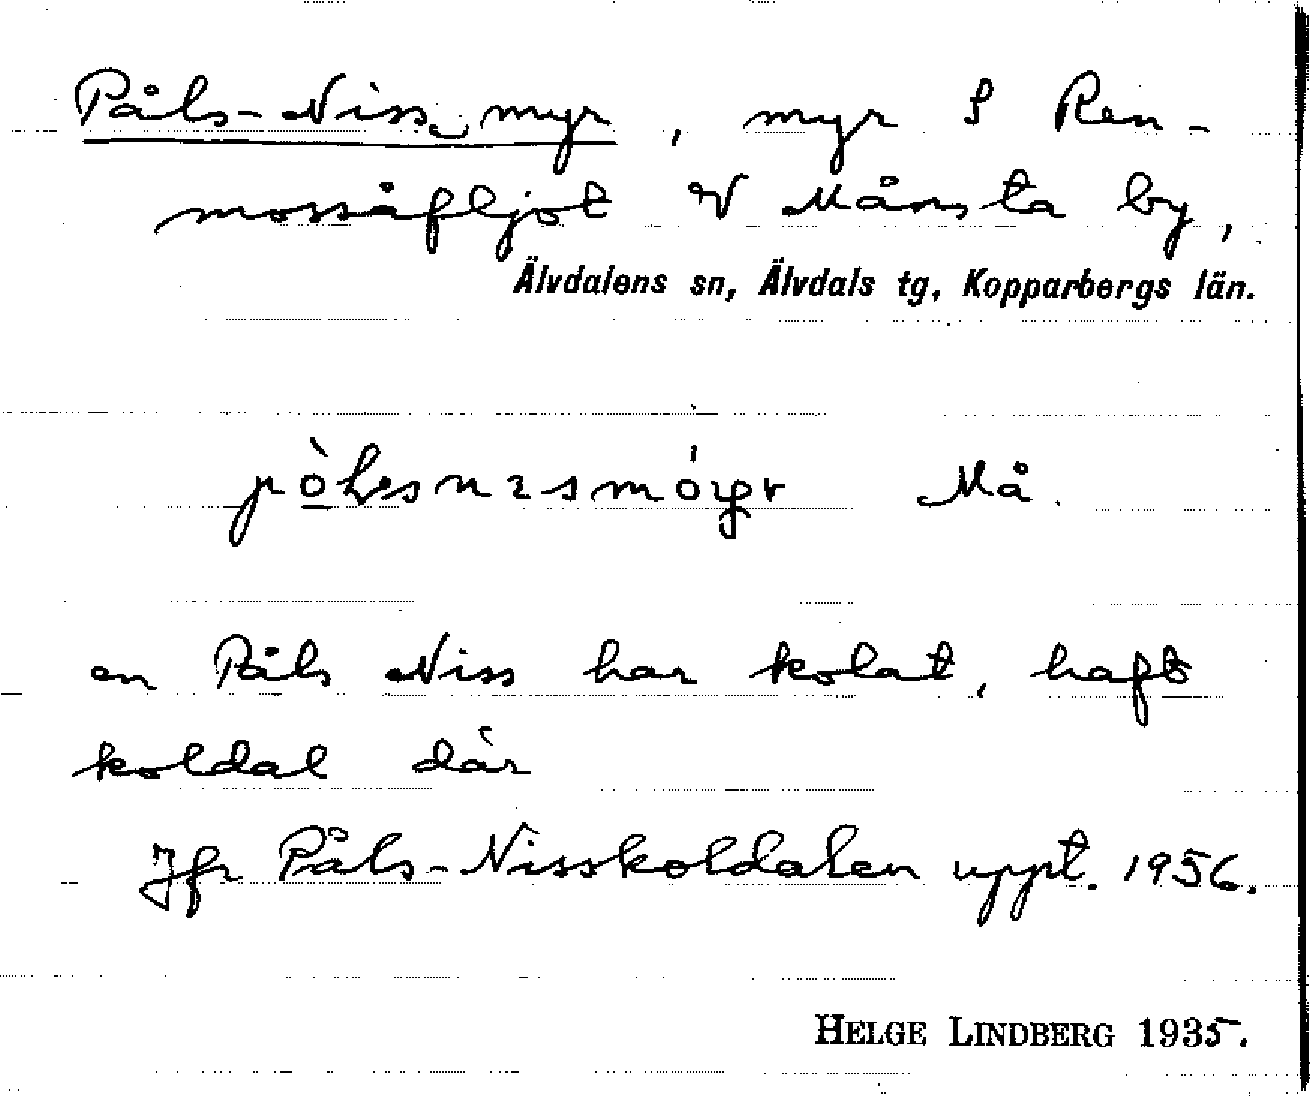 Påls-Niss myr, myr S Ren-
mossåfljot V Månsta by,
Älvdalens sn, Älvdals tg, Kopparbergs län.
Må.
en Påls Niss har kolat, haft
koldal där
Jfr Påls-Nisskoldalen uppt. 1956.
HELGE LINDBERG 1935.